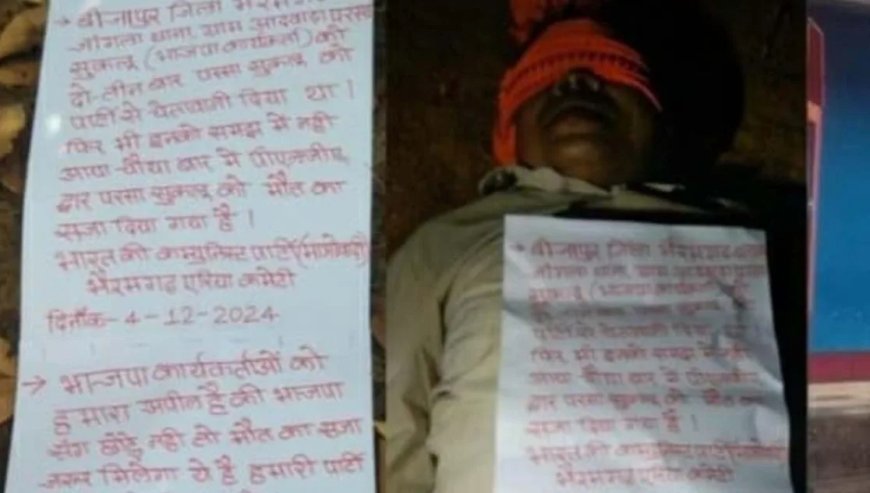 → बीजापुर जिला भैरमगढ़
जांगला थाना, ग्राम आदवाड़ा परसा
सुकलू (भाजपा कार्यकर्ता) को
दो-तीन बार परसा सुकलू को
पार्टी से चेतावणी दिया था।
फिर भी इनको समझ में नही
आया चौथा बार में पीएलजीए
द्वार परसा सुकलू को मौत का
सजा दिया गया है।
भारत की कम्युनिस्ट पार्टी (माओवादी)
भैरमगढ़ एरिया कमेटी
दिनाँक-4-12-2024
→ भाजपा कार्यकर्ताओं को
हमारा अपील है की भाजपा
संग छोड़े नही तो मौत का सजा
जरूर मिलेगा ये है हमारी पार्टी
→ बीजापुर जिला भैरमगढ़
जांगला थाना, ग्राम
सुकलू (भाजपा कार्यकर्ता)
दो-तीन बार परसा सुकलू को
पार्टी से चेतावणी दिया
फिर भी इनको समझ में नही
आया चौथा बार में पीएलजीए
द्वार परसा सुकलू को मौत का
सजा दिया गया है।
भारत की कम्युनिस्ट पार्टी (माओवादी)
भैरमगढ़ एरिया कमेटी